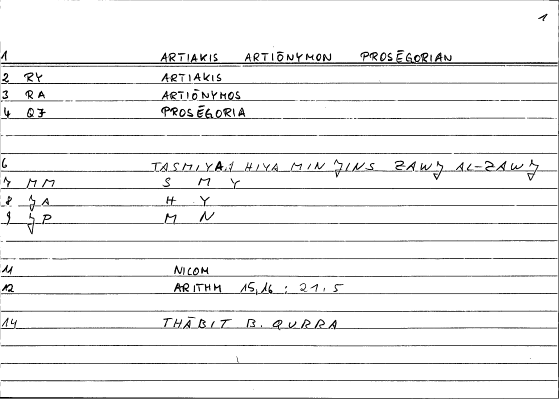 1
1 ARTIAKIS ARTIŌNYMON PROSĒGORIAN
2 RY ARTIAKIS
3 RA ARTIŌNYMOS
4 QJ PROSĒGORIA
6 TASMIYAṬ HIYA MIN JINS ZAWJ AL-ZAWJ
7 MM S M Y
8 JA H Y
9 JP M N
11 NICOM
12 ARITHM 15,16 : 21.5
14 THĀBIT B. QURRA